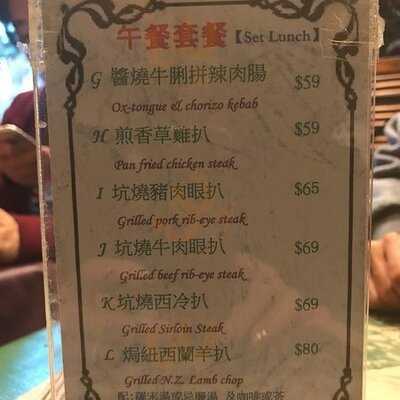 午餐套餐【Set Lunch】
G 醬燒牛脷拼辣肉腸 $59
Ox-tongue & chorizo kebab
H 煎香草雞扒 $59
Pan fried chicken steak
I 坑燒豬肉眼扒 $65
Grilled pork rib-eye steak
J 坑燒牛肉眼扒 $69
Grilled beef rib-eye steak
K 坑燒西冷扒 $69
Grilled Sirloin Steak
L 焗紐西蘭羊扒 $80
Grilled N.Z. Lamb chop
配: 羅宋湯或忌廉湯 及咖啡或茶